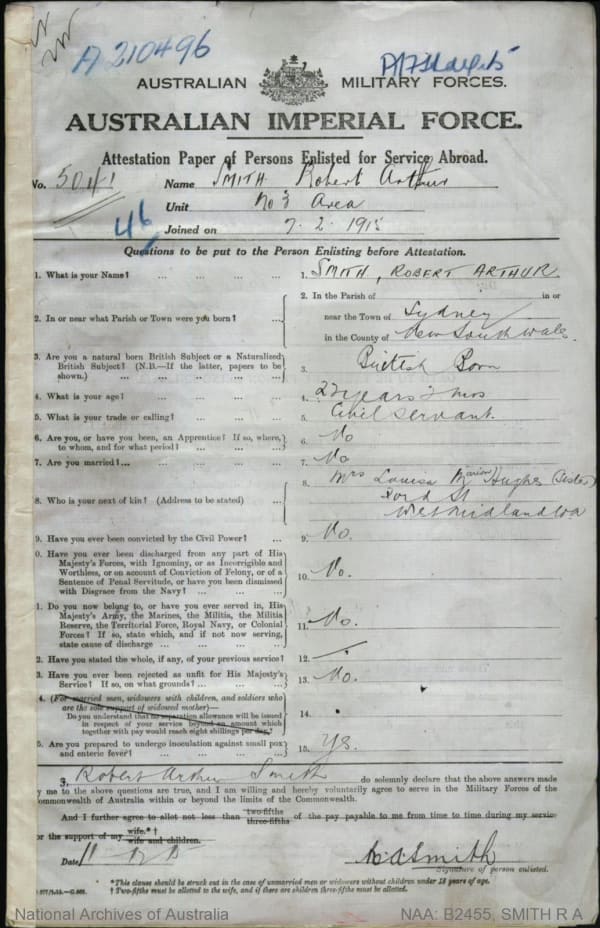 A 210496
AUSTRALIAN MILITARY FORCES.
AUSTRALIAN IMPERIAL FORCE.
Attestation Paper of Persons Enlisted for Service Abroad.
No. 5041 Name SMITH Robert Arthur
Unit No 3 Area
46 Joined on 7.2.1915
Questions to be put to the Person Enlisting before Attestation.
1. What is your Name? ... ... ... ... 1. SMITH, ROBERT ARTHUR
2. In or near what Parish or Town were you born? ... 2. In the Parish of in or
near the Town of Sydney
in the County of New South Wales.
3. Are you a natural born British Subject or a Naturalized
British Subject? (N.B.—If the latter, papers to be
shown.) ... ... ... ... ... 3. British Born
4. What is your age? ... ... ... ... 4. years mos
5. What is your trade or calling? ... ... ... 5. Civil Servant.
6. Are you, or have you been, an Apprentice? If so, where,
to whom, and for what period? ... ... ... 6. No
7. Are you married?... ... ... ... ... 7. No
8. Who is your next of kin? (Address to be stated) ... 8. Mrs Louisa Marion Hughes (Sister)
St
West Midland WA
9. Have you ever been convicted by the Civil Power? ... 9. No.
0. Have you ever been discharged from any part of His
Majesty's Forces, with Ignominy, or as Incorrigible and
Worthless, or on account of Conviction of Felony, or of a
Sentence of Penal Servitude, or have you been dismissed
with Disgrace from the Navy? ... ... ... 10. No.
1. Do you now belong to, or have you ever served in, His
Majesty's Army, the Marines, the Militia, the Militia
Reserve, the Territorial Force, Royal Navy, or Colonial
Forces? If so, state which, and if not now serving,
state cause of discharge ... ... ... ... 11. No.
2. Have you stated the whole, if any, of your previous service? 12.
3. Have you ever been rejected as unfit for His Majesty's
Service? If so, on what grounds? ... ... ... 13. No.
4. (For married men, widowers with children, and soldiers who
are the sole support of widowed mother)—
Do you understand that no separation allowance will be issued
in respect of your service beyond an amount which
together with pay would reach eight shillings per day? 14.
5. Are you prepared to undergo inoculation against small pox
and enteric fever? ... ... ... ... 15. Yes.
Robert Arthur Smith do solemnly declare that the above answers made
by me to the above questions are true, and I am willing and hereby voluntarily agree to serve in the Military Forces of the
Commonwealth of Australia within or beyond the limits of the Commonwealth.
And I further agree to allot not less than two-fifths three-fifths of the pay payable to me from time to time during my service
for the support of my wife.*† wife and children.
Date R A Smith
Signature of person enlisted.
*This clause should be struck out in the case of unmarried men or widowers without children under 18 years of age.
†Two-fifths must be allotted to the wife, and if there are children three-fifths must be allotted.
National Archives of Australia NAA: B2455, SMITH R A